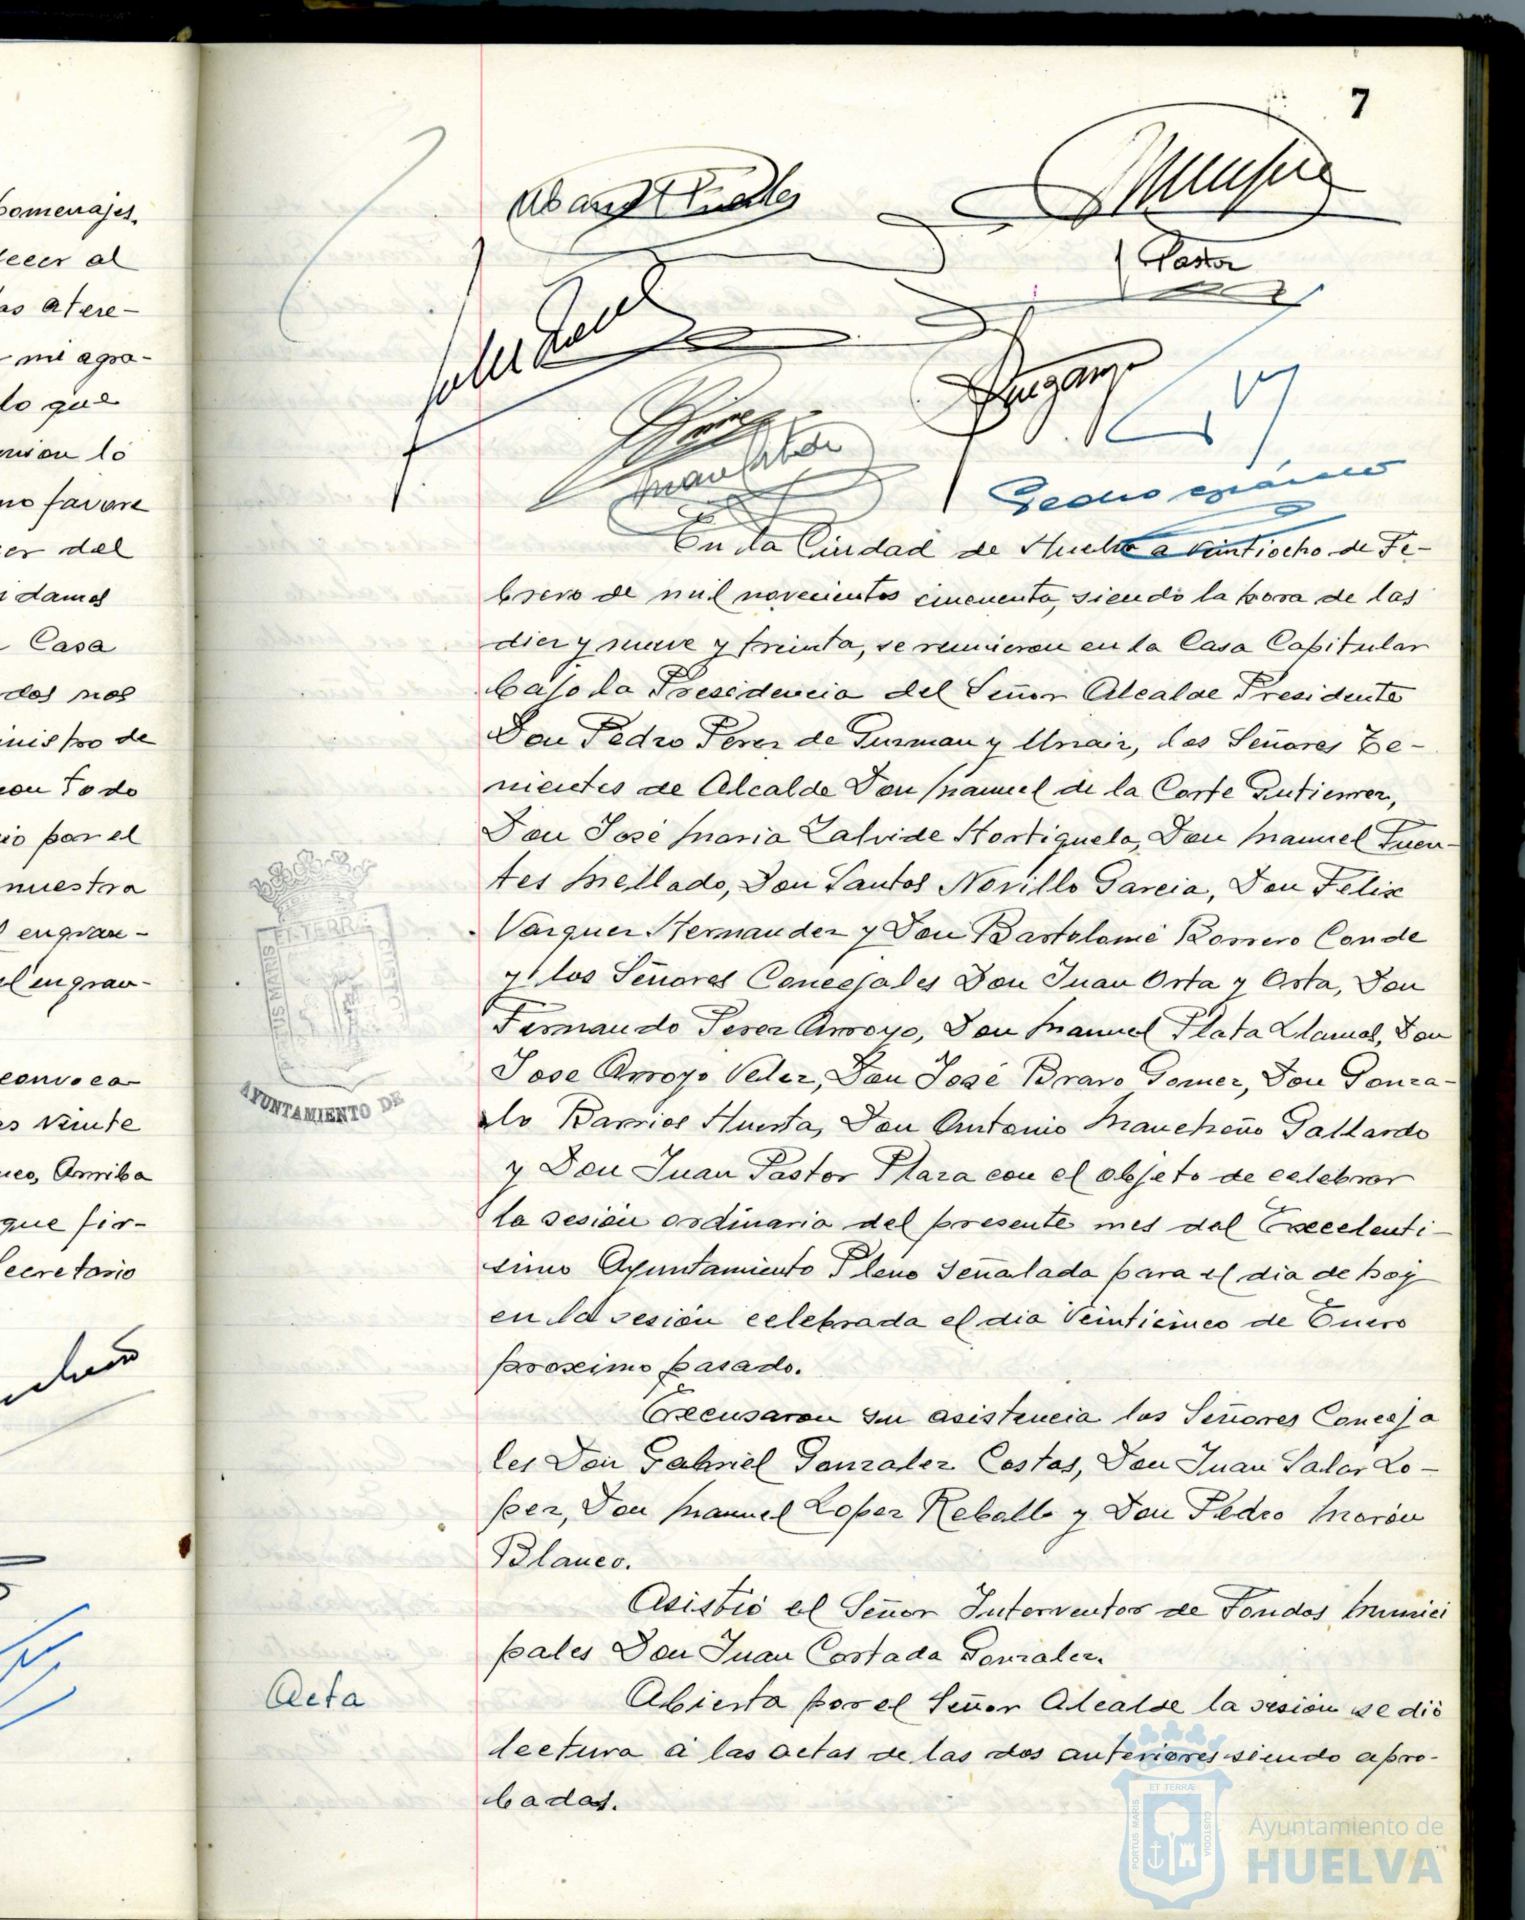 7
homenajes.
lecer al
as atere-
mi agra-
lo que
lo
mo favore
er del
damos
Casa
dos nos
inistro de
con todo
io por el
nuestra
engran-
el engran-
convoca-
s veinte
Arriba
que fir-
Secretario
Pastor
En la Ciudad de Huelva a veintiocho de Fe-
brero de mil novecientos cincuenta, siendo la hora de las
diez y nueve y treinta, se reunieron en la Casa Capitular
bajo la Presidencia del Señor Alcalde Presidente
Don Pedro Perez de Guzman y Urzaiz, los Señores Te-
nientes de Alcalde Don Manuel de la Corte Gutierrez,
Don José Maria Zalvide Hortiguela, Don Manuel Fuen-
tes Mellado, Don Santos Novillo Garcia, Don Felix
Vazquez Hernandez y Don Bartolomé Borrero Conde
y los Señores Concejales Don Juan Orta y Orta, Don
Fernando Perez Arroyo, Don Manuel Plata Llamas, Don
Jose Arroyo Velez, Don José Bravo Gomez, Don Gonza-
lo Barrios Huerta, Don Antonio Mancheño Gallardo
y Don Juan Pastor Plaza con el objeto de celebrar
la sesión ordinaria del presente mes del Excelenti-
simo Ayuntamiento Pleno señalada para el dia de hoy
en la sesión celebrada el dia veinticinco de Enero
proximo pasado.
Excusaron su asistencia los Señores Conceja
les Don Gabriel Gonzalez Costas, Don Juan Salas Lo-
pez, Don Manuel Lopez Rebollo y Don Pedro Morón
Blanco.
Asistió el Señor Interventor de Fondos Munici
pales Don Juan Cortada Gonzalez.
Acta
Abierta por el Señor Alcalde la sesión se dió
lectura á las actas de las dos anteriores siendo apro-
badas.
ET TERRA
AYUNTAMIENTO DE
ET TERRÆ
PORTUS MARIS
CUSTODIA
Ayuntamiento de
HUELVA